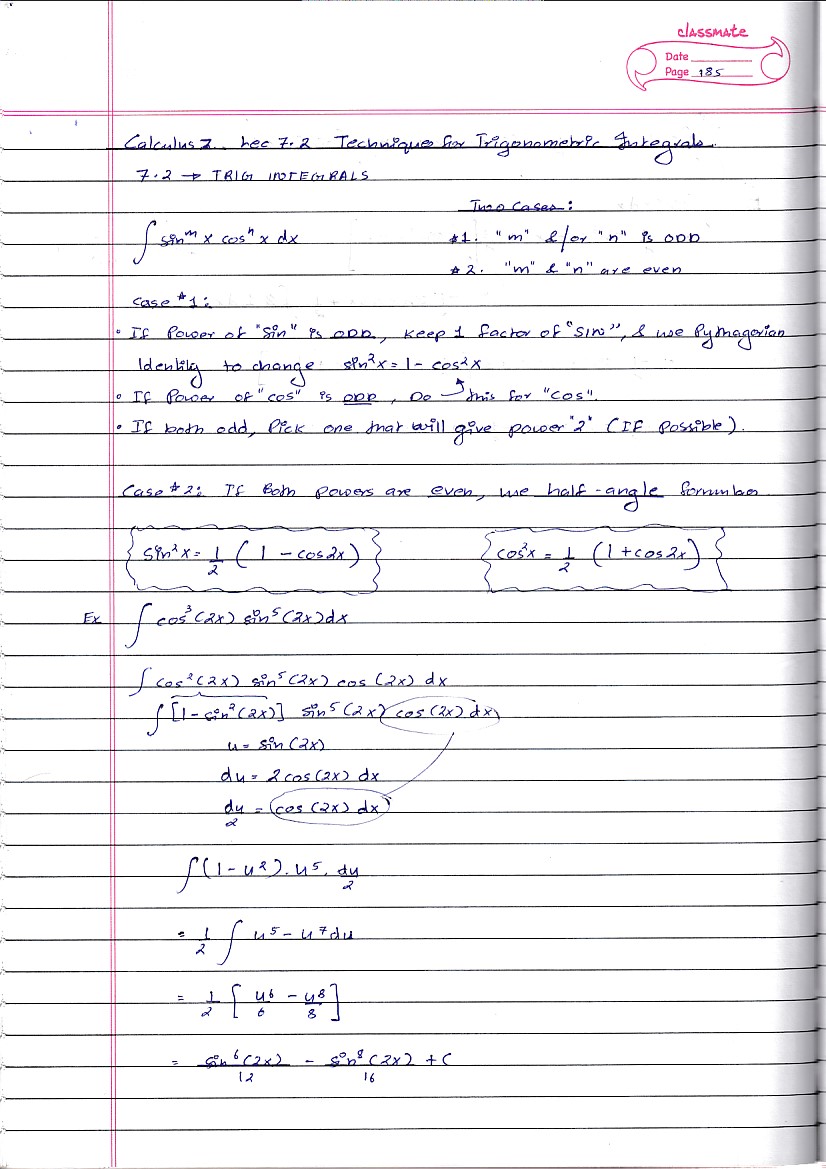 classmate
Date
Page 185
Calculus 2. Lec 7.2 Techniques for Trigonometric Integrals.
7.2 → TRIG INTEGRALS
Two Cases:
∫ sinᵐ x cosⁿ x dx
#1. "m" &/or "n" is ODD
#2. "m" & "n" are even
Case #1:
• If Power of "Sin" is ODD, keep 1 factor of "SIN", & use Pythagorian
Identity to change sin²x = 1 - cos²x
• If Power of "cos" is ODD, Do this for "cos".
• If both odd, Pick one that will give power "2" (IF Possible).
Case #2: If Both powers are even, use half-angle formulas
sin²x = 1/2 (1 - cos2x)
cos²x = 1/2 (1 + cos2x)
Ex ∫ cos³(2x) sin⁵(2x)dx
∫ cos²(2x) sin⁵(2x) cos (2x) dx
∫ [1 - sin²(2x)] sin⁵(2x) cos(2x) dx
u = sin(2x)
du = 2cos(2x) dx
du/2 = cos (2x) dx
∫ (1 - u²). u⁵. du/2
= 1/2 ∫ u⁵ - u⁷ du
= 1/2 [u⁶/6 - u⁸/8]
= sin⁶(2x)/12 - sin⁸(2x)/16 + C